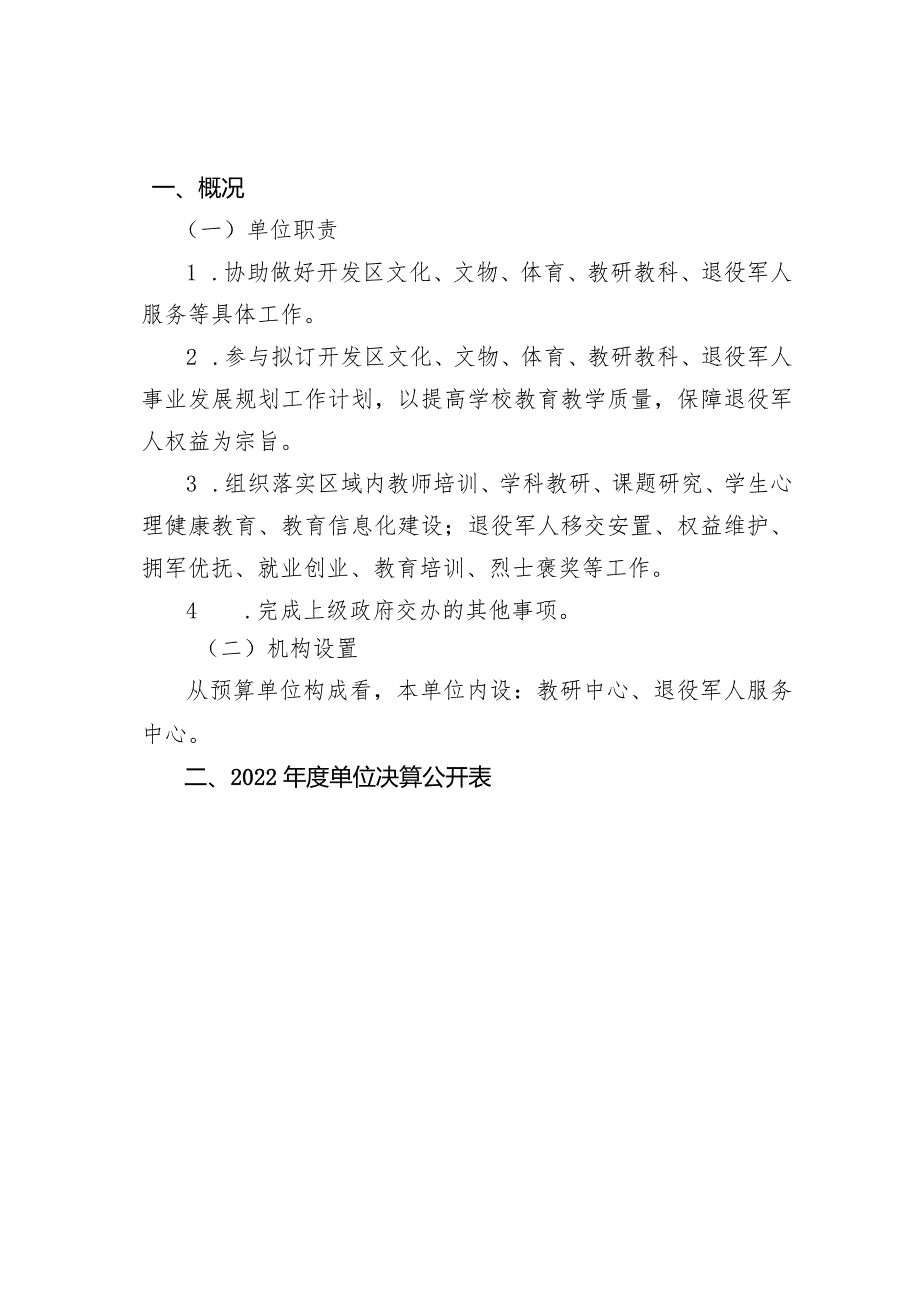 一、概况
（一）单位职责
1 .协助做好开发区文化、文物、体育、教研教科、退役军人
服务等具体工作。
2 .参与拟订开发区文化、文物、体育、教研教科、退役军人
事业发展规划工作计划，以提高学校教育教学质量，保障退役军
人权益为宗旨。
3 .组织落实区域内教师培训、学科教研、课题研究、学生心
理健康教育、教育信息化建设；退役军人移交安置、权益维护、
拥军优抚、就业创业、教育培训、烈士褒奖等工作。
4 .完成上级政府交办的其他事项。
（二）机构设置
从预算单位构成看，本单位内设：教研中心、退役军人服务
中心。
二、2022 年度单位决算公开表